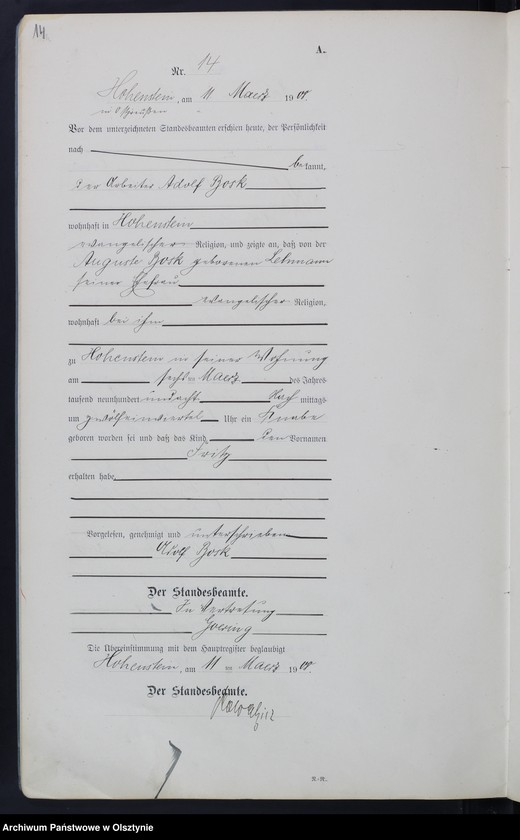 14
A.
Nr. 14
Hohenstein, am 11 Maerz 1908.
in Ostpreußen
Vor dem unterzeichneten Standesbeamten erschien heute, der Persönlichkeit
nach
bekannt,
der Arbeiter Adolf Bosk
wohnhaft in Hohenstein
evangelischer Religion, und zeigte an, daß von der
Auguste Bosk geborenen Lehmann
seiner Ehefrau
evangelischer Religion,
wohnhaft bei ihm
zu Hohenstein in seiner Wohnung
am sechsten Maerz des Jahres
tausend neunhundert und acht Nach mittags
um zwölfeinviertel Uhr ein Knabe
geboren worden sei und daß das Kind den Vornamen
Fritz
erhalten habe
Vorgelesen, genehmigt und unterschrieben
Adolf Bosk
Der Standesbeamte.
In Vertretung
Goering
Die Übereinstimmung mit dem Hauptregister beglaubigt
Hohenstein, am 11 ten Maerz 1908.
Der Standesbeamte.
R.-R.
Archiwum Państwowe w Olsztynie